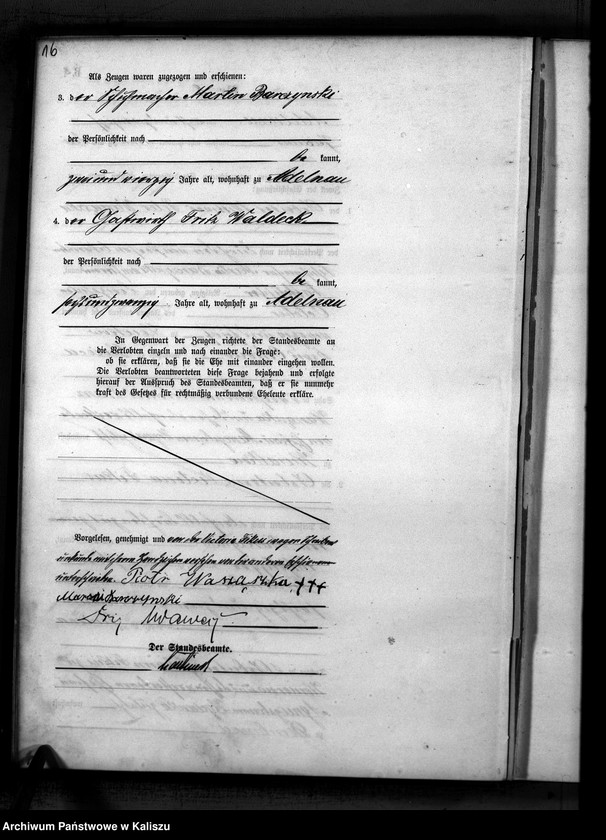 16
Als Zeugen waren zugezogen und erschienen:
3. der Schuhmacher Martin Barczynski
der Persönlichkeit nach
be kannt,
zweiundvierzig Jahre alt, wohnhaft zu Adelnau
4. der Gastwirth Fritz Waldeck
der Persönlichkeit nach
be kannt,
sechsundzwanzig Jahre alt, wohnhaft zu Adelnau
In Gegenwart der Zeugen richtete der Standesbeamte an
die Verlobten einzeln und nach einander die Frage:
ob sie erklären, daß sie die Ehe mit einander eingehen wollen.
Die Verlobten beantworteten diese Frage bejahend und erfolgte
hierauf der Ausspruch des Standesbeamten, daß er sie nunmehr
kraft des Gesetzes für rechtmäßig verbundene Eheleute erkläre.
Vorgelesen, genehmigt und von der wegen
mit ihrem Handzeichen versehen von der anderen
unterschrieben. Piotr +++
Barczynski
Der Standesbeamte.
Archiwum Państwowe w Kaliszu